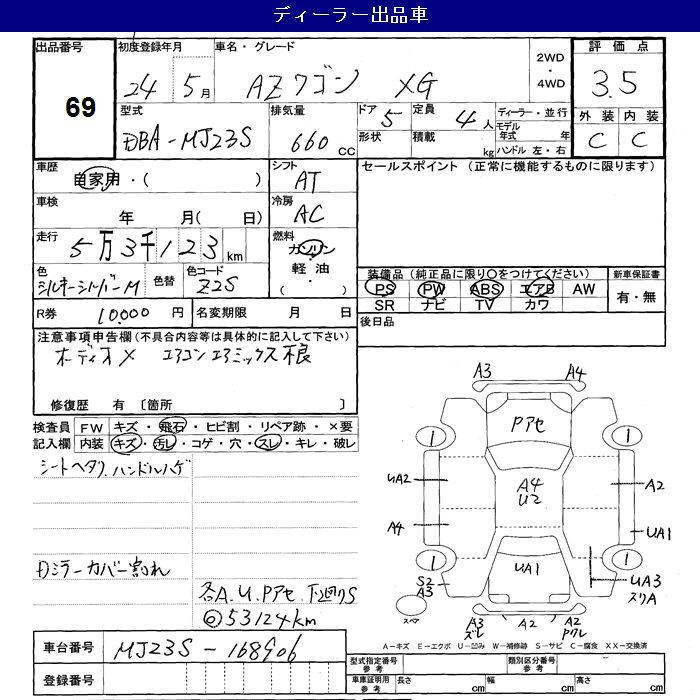 ディーラー出品車
出品番号
69
初度登録年月
24 5月
車名・グレード
AZワゴン XG
2WD
・
4WD
評価点
3.5
外装 内装
C C
型式
DBA-MJ23S
排気量
660 cc
ドア 5
定員 4人
形状
積載 kg
ディーラー・並行
モデル年式 年
ハンドル 左・右
車歴
自家用・( )
シフト
AT
セールスポイント (正常に機能するものに限ります)
車検
年 月( 日)
冷房
AC
走行
5万3千123km
燃料
ガソリン
軽油
( ・ )
色
シルキーシルバーM
色替
色コード
Z2S
装備品 (純正品に限り○をつけてください)
PS PW ABS エアB AW
SR ナビ TV カワ
新車保証書
有・無
R券 10,000 円
名変期限 月 日
後日品
注意事項申告欄 (不具合内容等は具体的に記入して下さい)
オーディオ× エアコンエアミックス不良
修復歴 有 〔箇所 〕
検査員
記入欄
FW キズ・飛石・ヒビ割・リペア跡・×要
内装 キズ・汚レ・コゲ・穴・スレ・キレ・破レ
シートヘタリ、ハンドルハゲ
Dミラーカバー割れ
各A.U.Pアセ.下廻りS
◎53124km
A3 A4
Pアセ
1 1
UA2
A4
U2
A2
A4
UA1
1 1
UA1
S2
A3
UA3
スリA
スペア
A3
ズレ
A2
A2
Pワレ
A−キズ E−エクボ U−凹み W−補修跡 S−サビ C−腐食 XX−交換済
車台番号
MJ23S-168906
登録番号
型式指定番号
参考
類別区分番号
参考
車庫証明用
参考
長さ cm
幅 cm
高さ cm